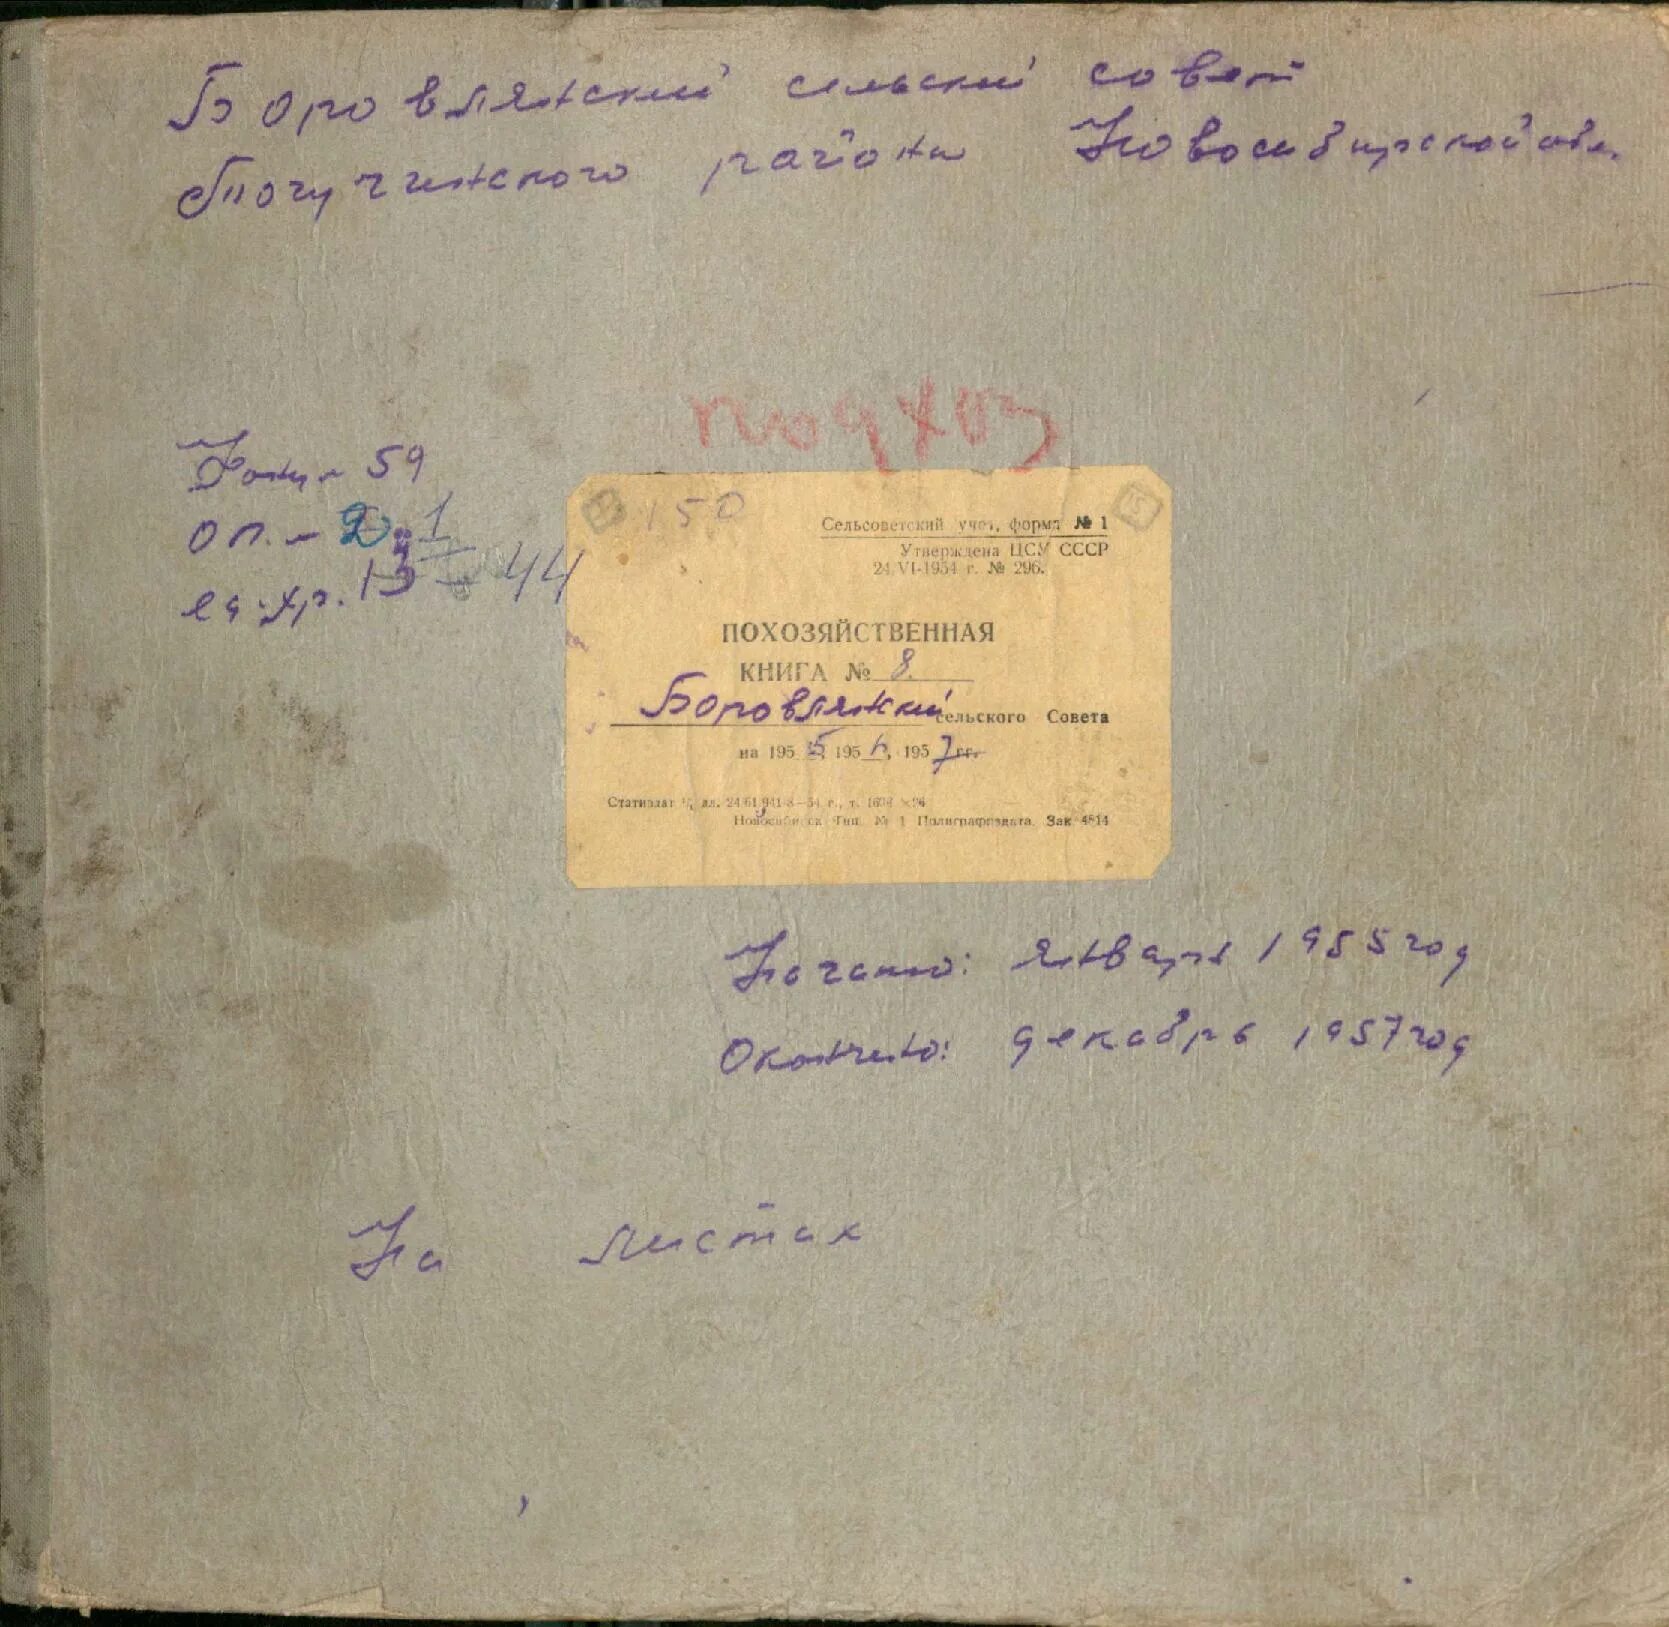 Боровлянский сельский совет
Тогучинского района Новосибирской обл.
подхоз
Фонд - 59
оп. - 2 1
ед. хр. 13 44
150
Сельсоветский учет, форма № 1
Утверждена ЦСУ СССР
24.VI-1954 г. № 296.
ПОХОЗЯЙСТВЕННАЯ
КНИГА № 8.
Боровлянский сельского Совета
на 1955, 1956, 1957 гг.
Новосибирск Тип. № 1 Полиграфиздата. Зак 4814
Начато: январь 1955 год
Окончено: декабрь 1957 год
На листах